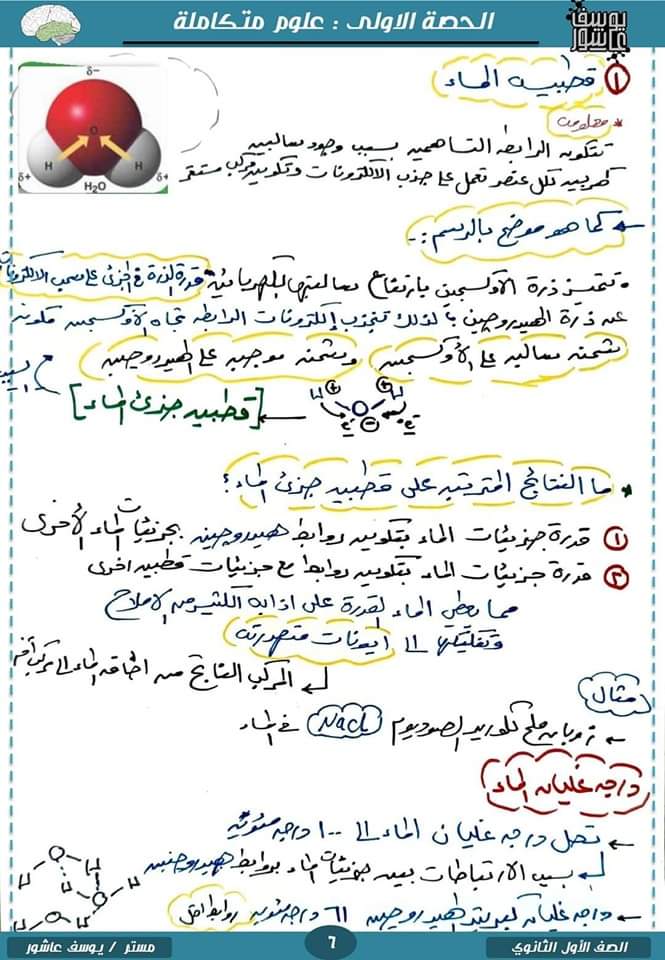 الحصة الاولى : علوم متكاملة
يوسف عاشور
① قطبيه الماء
* معلومه
تتكون الرابطه التساهميه بسبب وجود سالبيه
كهربيه لكل عنصر تعمل على جذب الالكترونات وتكوين مركب مستقر
δ-
O
H H
δ+ δ+
H₂O
← كما هو موضح بالرسم :-
• تتميز ذرة الأوكسجين بارتفاع سالبيتها الكهربائيه
قدرة الذرة في الجزئ على سحب الالكترونات
عن ذرة الهيدروجين ، لذلك تنجذب إلكترونات الرابطه تجاه الأوكسجين مكونه
شحنه سالبه على الأوكسجين وشحنه موجبه على الهيدروجين
H + + H
O
e⁻ - e⁻
← [قطبيه جزئ الماء]
* ما النتائج المترتبه على قطبيه جزئ الماء ؟
① قدرة جزيئات الماء بتكوين روابط هيدروجينه بجزيئات الماء الأخرى
② قدرة جزيئات الماء بتكوين روابط مع جزيئات قطبيه اخرى
مما يعطي الماء لقدرة على اذابه الكثير من الاملاح
وتفكيكها الى ايونات متهدرته
المركب الناتج من اضافه الماء الى مركب أخر
مثال
← ذوبان ملح كلوريد الصوديوم NaCl في الماء
درجه غليان الماء
← تصل درجه غليان الماء الى ١٠٠ درجه مئويه
بسبب الارتباطات بين جزيئات الماء بروابط هيدروجينيه
← درجه غليان كبريتيد الهيدروجين ٦١ درجه مئويه روابط اقل
O H H
O H H
O H H
مستر / يوسف عاشور
٦
الصف الأول الثانوي